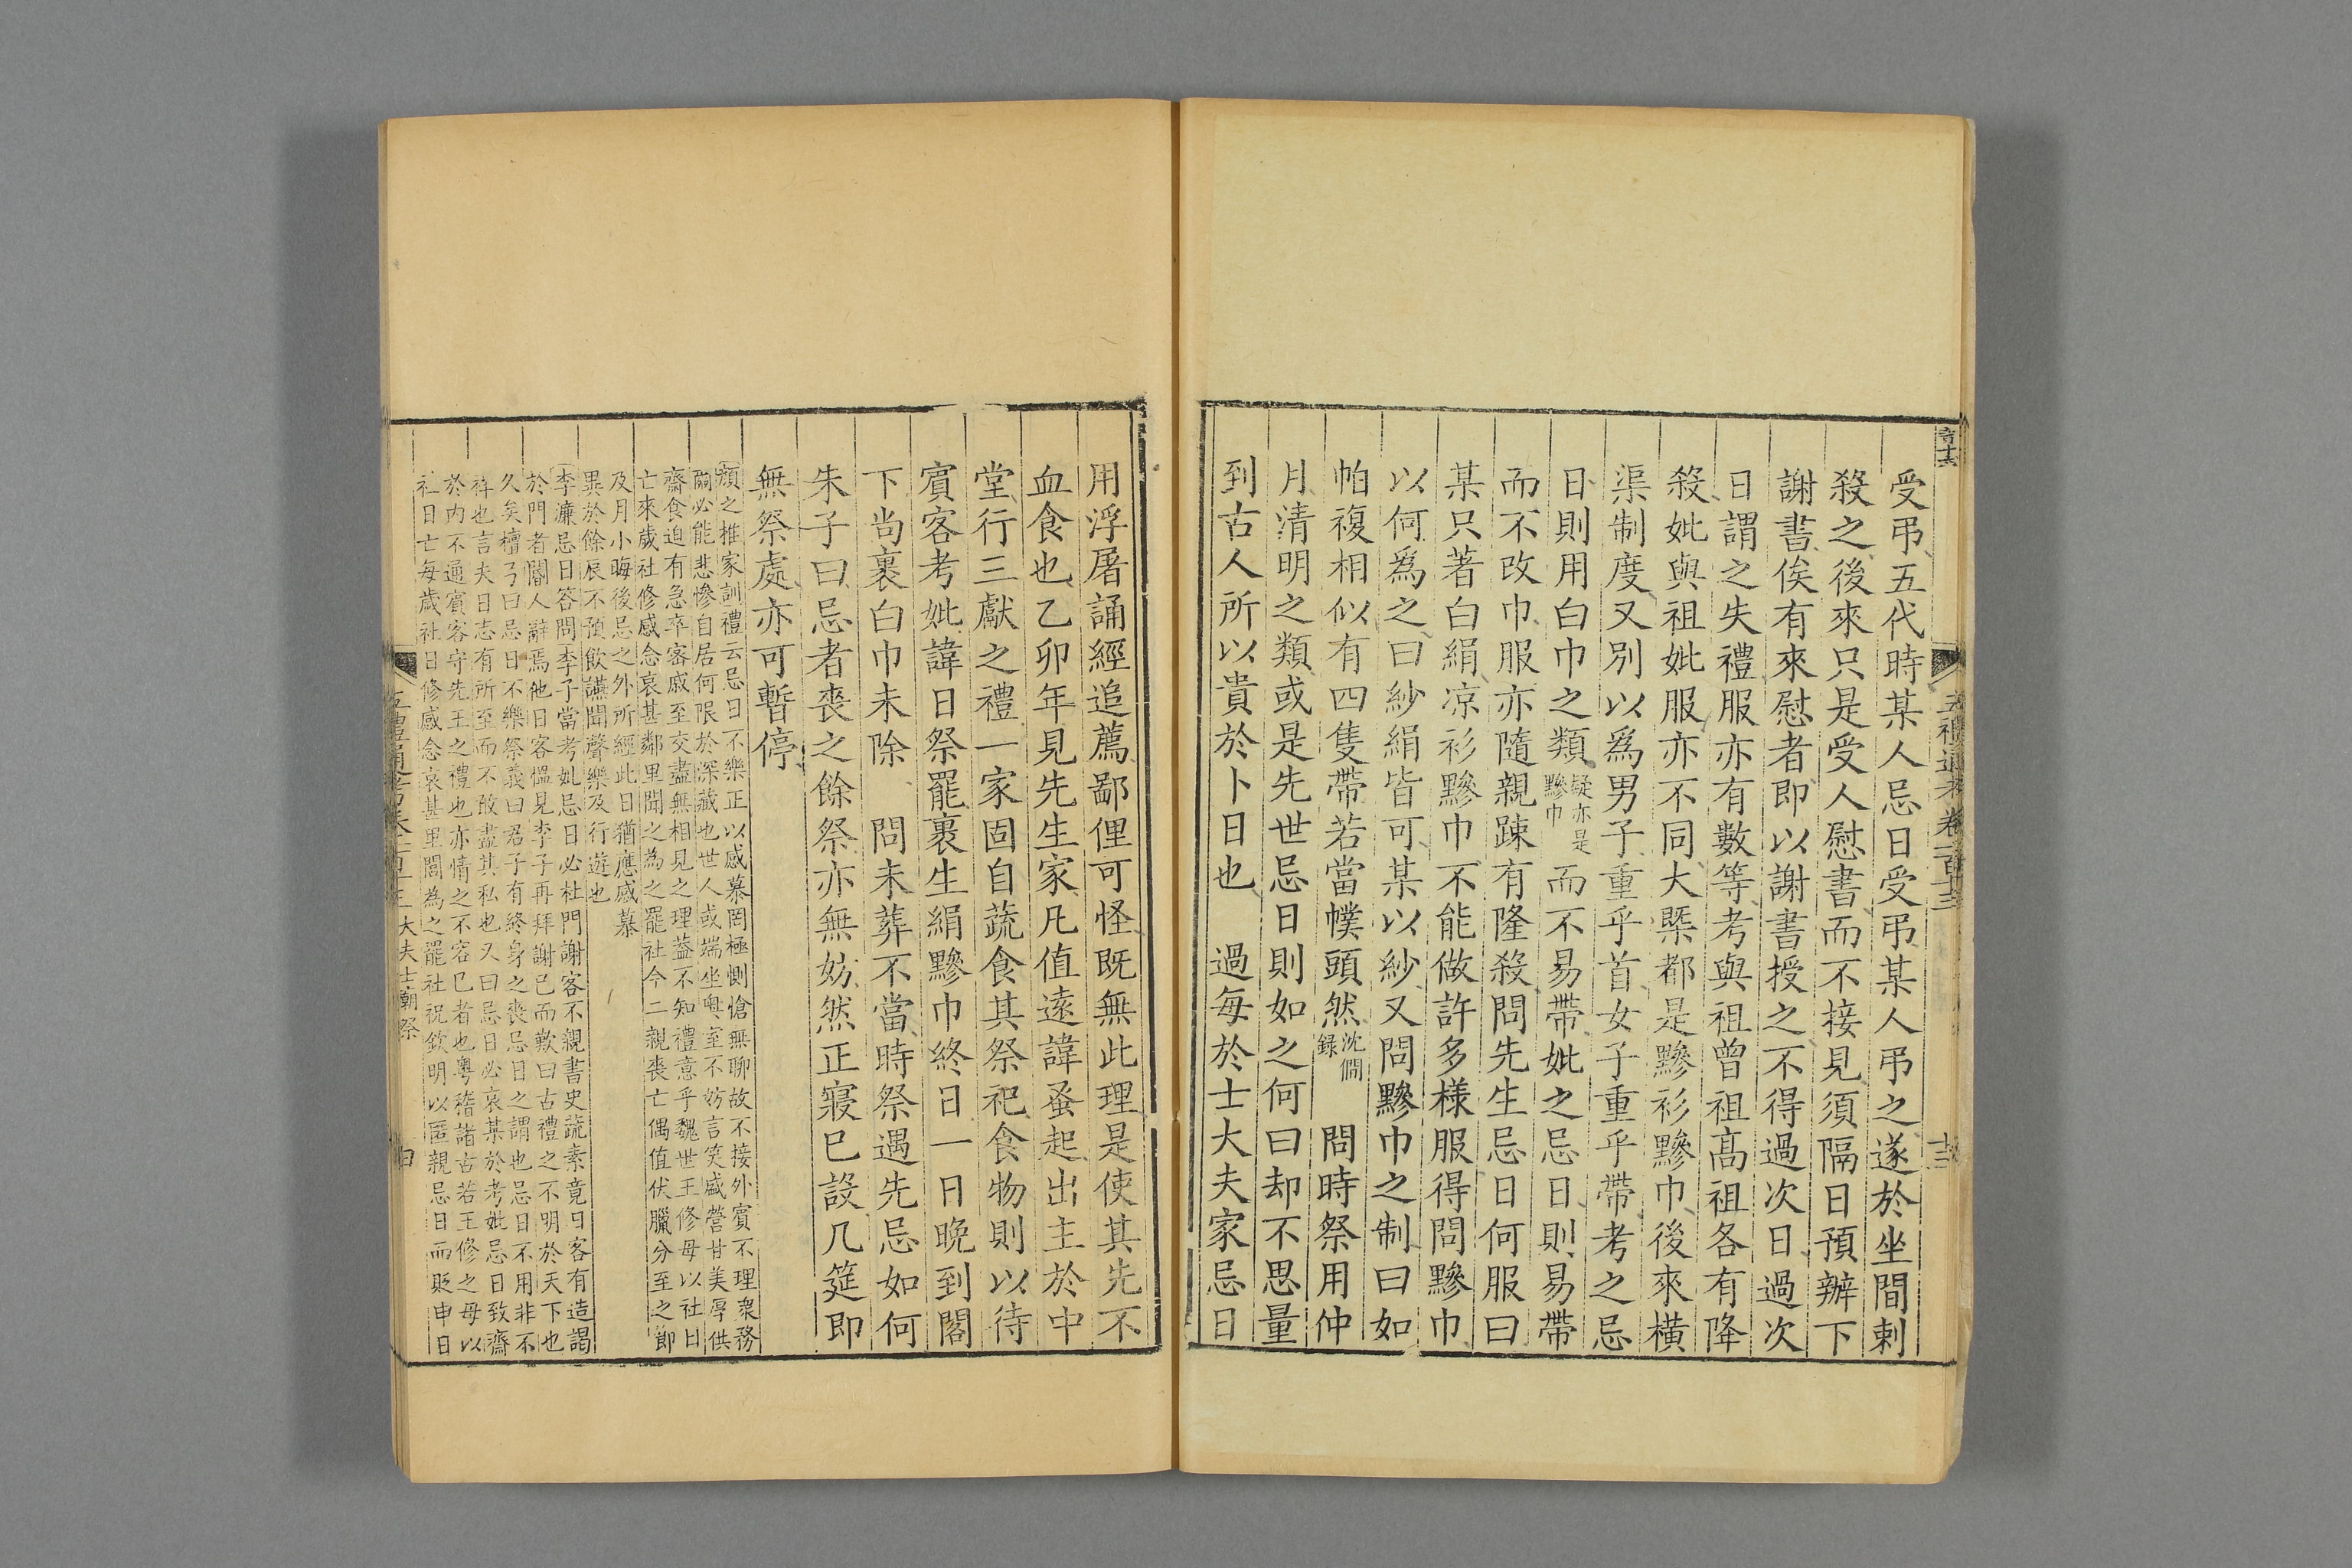 受弔五代時某人忌日受弔某人弔之遂於坐間刺
殺之後來只是受人慰書而不接見須隔日預辦下
謝書俟有來慰者即以謝書授之不得過次日過次
日謂之失禮服亦有數等考與祖曾祖髙祖各有降
殺妣與祖妣服亦不同大槩都是黲衫黲巾後來橫
渠制度又別以爲男子重乎首女子重乎帶考之忌
日則用白巾之類疑亦是黲巾而不易帶妣之忌日則易帶
而不改巾服亦隨親踈有隆殺問先生忌日何服曰
某只著白絹凉衫黲巾不能做許多樣服得問黲巾
以何爲之曰紗絹皆可某以紗又問黲巾之制曰如
帕複相似有四隻帶若當幞頭然沈僩録　問時祭用仲
月清明之類或是先世忌日則如之何曰却不思量
到古人所以貴於卜日也　過每於士大夫家忌日
用浮屠誦經追薦鄙俚可怪既無此理是使其先不
血食也乙卯年見先生家凡值遠諱蚤起出主於中
堂行三獻之禮一家固自蔬食其祭祀食物則以待
賓客考妣諱日祭罷裹生絹黲巾終日一日晚到閣
下尚裹白巾未除　問未葬不當時祭遇先忌如何
朱子曰忌者喪之餘祭亦無妨然正寢已設几筵即
無祭處亦可暫停
顏之推家訓禮云忌日不樂正以感慕罔極惻愴無聊故不接外賓不理衆務
爾必能悲慘自居何限於深藏也世人或端坐奧室不妨言笑盛營甘美厚供
齋食迫有急卒客戚至交盡無相見之理蓋不知禮意乎魏世王修母以社日
亡來歲社修感念哀甚鄰里聞之為之罷社今二親喪亡偶值伏臘分至之節
及月小晦後忌之外所經此日猶應感慕
異於餘辰不預飲讌聞聲樂及行遊也
李濂忌日答問李子當考妣忌日必杜門謝客不親書史蔬素竟日客有造謁
於門者閽人辭焉他日客慍見李子再拜謝已而歎曰古禮之不明於天下也
久矣檀弓曰忌日不樂祭義曰君子有終身之喪忌日之謂也忌日不用非不
祥也言夫日志有所至而不敢盡其私也又曰忌日必哀某於考妣忌日致齋
於内不通賓客守先王之禮也亦情之不容已者也粵稽諸古若王修之母以
社日亡每歲社日修感念哀甚里閭為之罷社祝欽明以匿親忌日而貶申日
五禮通考卷一百十三 大夫士廟祭